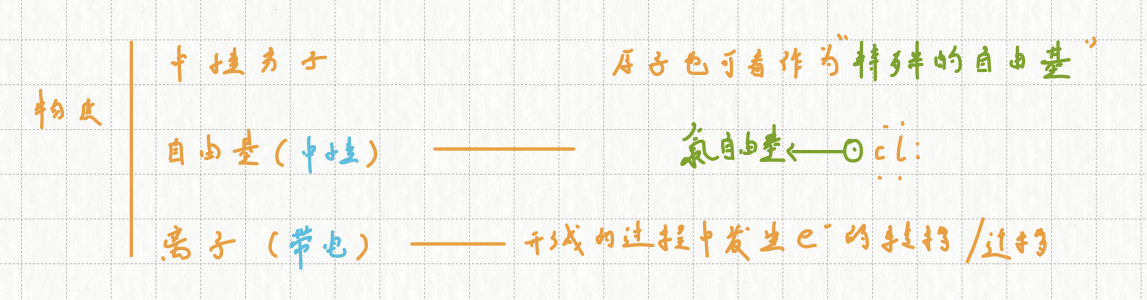 中性分子
原子也可看作为"特殊的自由基"
物质
自由基(中性)
氯自由基←⊙cl:
离子(带电)
形成的过程中发生e⁻的转移/迁移